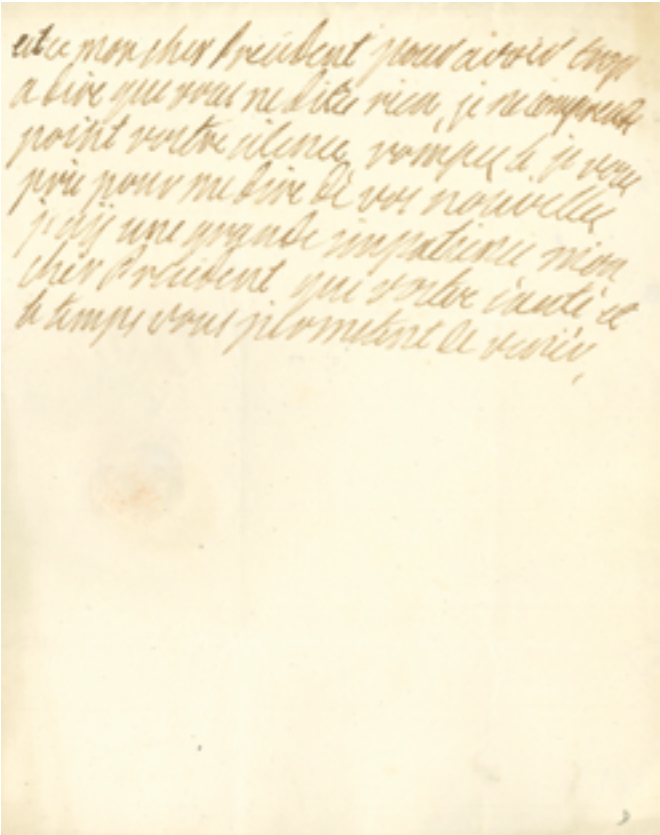 estce mon cher President pour avoir trop
a dire que vous ne dites rien, je ne comprends
point vostre silence, rompes le je vous
prie pour me dire de vos nouvelles
j'ay une grande impatience mon
cher President que vostre santé et
le temps vous permetent de venir,